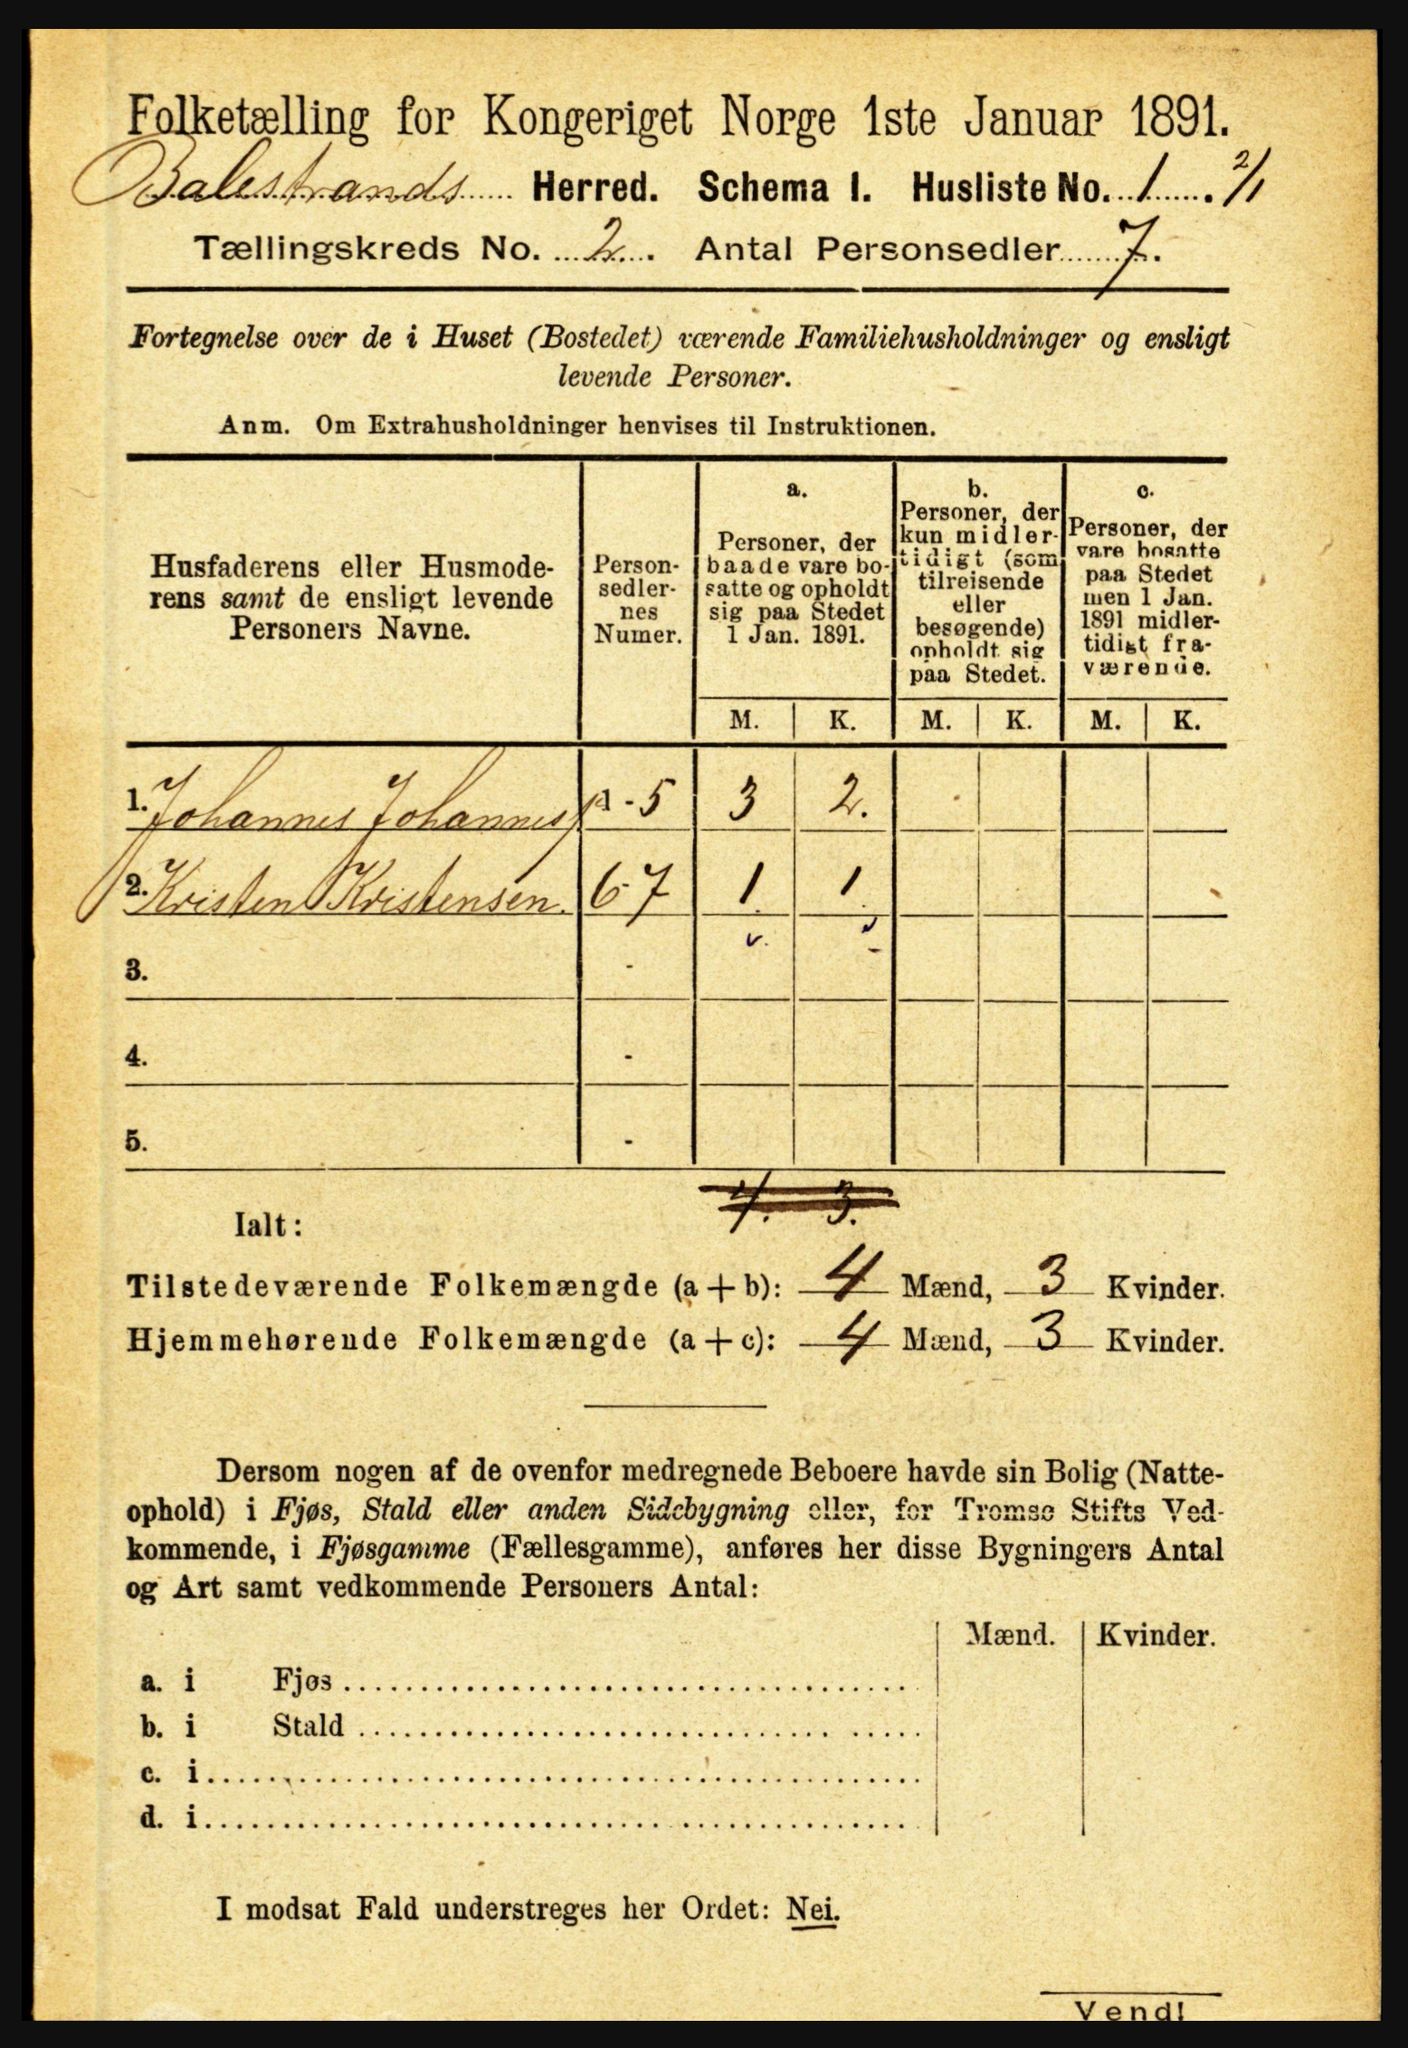 Folketælling for Kongeriget Norge 1ste Januar 1891.
Balestrands Herred. Schema 1. Husliste No. 1. 2/1
Tællingskreds No. 2. Antal Personsedler 7.
Fortegnelse over de i Huset (Bostedet) værende Familiehusholdninger og ensligt
levende Personer.
Anm. Om Extrahusholdninger henvises til Instruktionen.
Husfaderens eller Husmode-
rens samt de ensligt levende
Personers Navne.
Person-
sedler-
nes
Numer.
a.
Personer, der
baade vare bo-
satte og opholdt
sig paa Stedet
1 Jan. 1891.
b.
Personer, der
kun midler-
tidigt (som
tilreisende
eller
besøgende)
opholdt sig
paa Stedet.
c.
Personer, der
vare bosatte
paa Stedet
men 1 Jan.
1891 midler-
tidigt fra-
værende.
M. K. M. K. M. K.
1. Johannes Johannes 1-5 3 2.
2. Kristen Kristensen. 6-7 1. 1.
3. -
4. -
5. -
4. 3.
Ialt:
Tilstedeværende Folkemængde (a + b): 4 Mænd, 3 Kvinder.
Hjemmehørende Folkemængde (a + c): 4 Mænd, 3 Kvinder.
Dersom nogen af de ovenfor medregnede Beboere havde sin Bolig (Natte-
ophold) i Fjøs, Stald eller anden Sidebygning eller, for Tromsø Stifts Ved-
kommende, i Fjøsgamme (Fællesgamme), anføres her disse Bygningers Antal
og Art samt vedkommende Personers Antal:
Mænd. Kvinder.
a. i Fjøs
b. i Stald
c. i
d. i
I modsat Fald understreges her Ordet: Nei.
Vend!